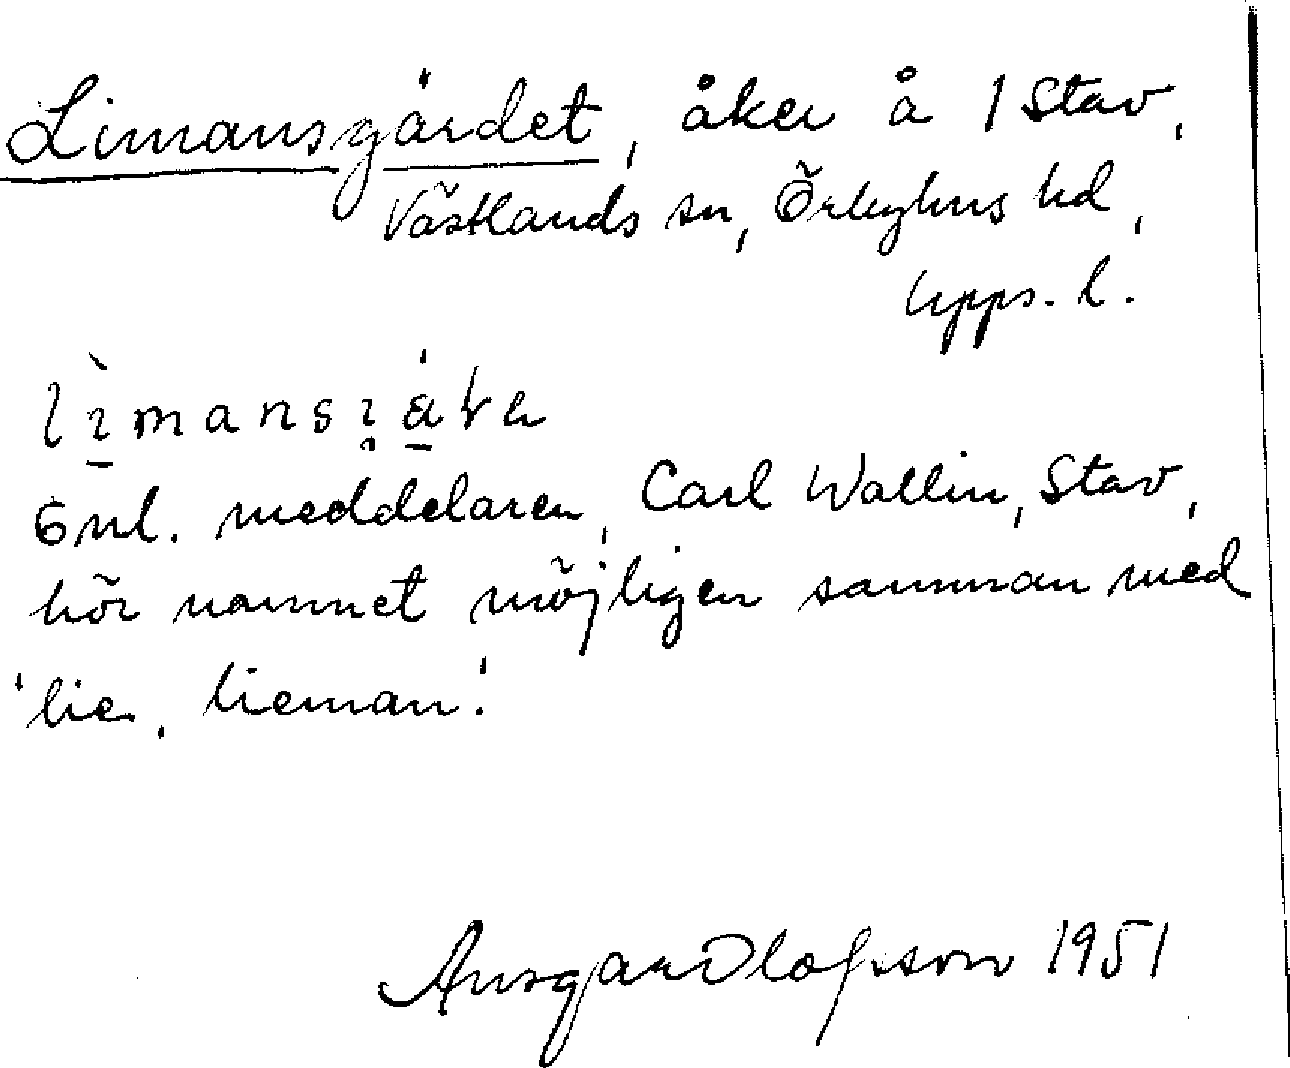 Limansgärdet, åker å 1 Stav,
Västlands sn, Örbyhus hd,
Upps. l.
Enl. meddelaren, Carl Wallin, Stav,
hör namnet möjligen samman med
'lie, lieman'.
Ansgar Olofsson 1951